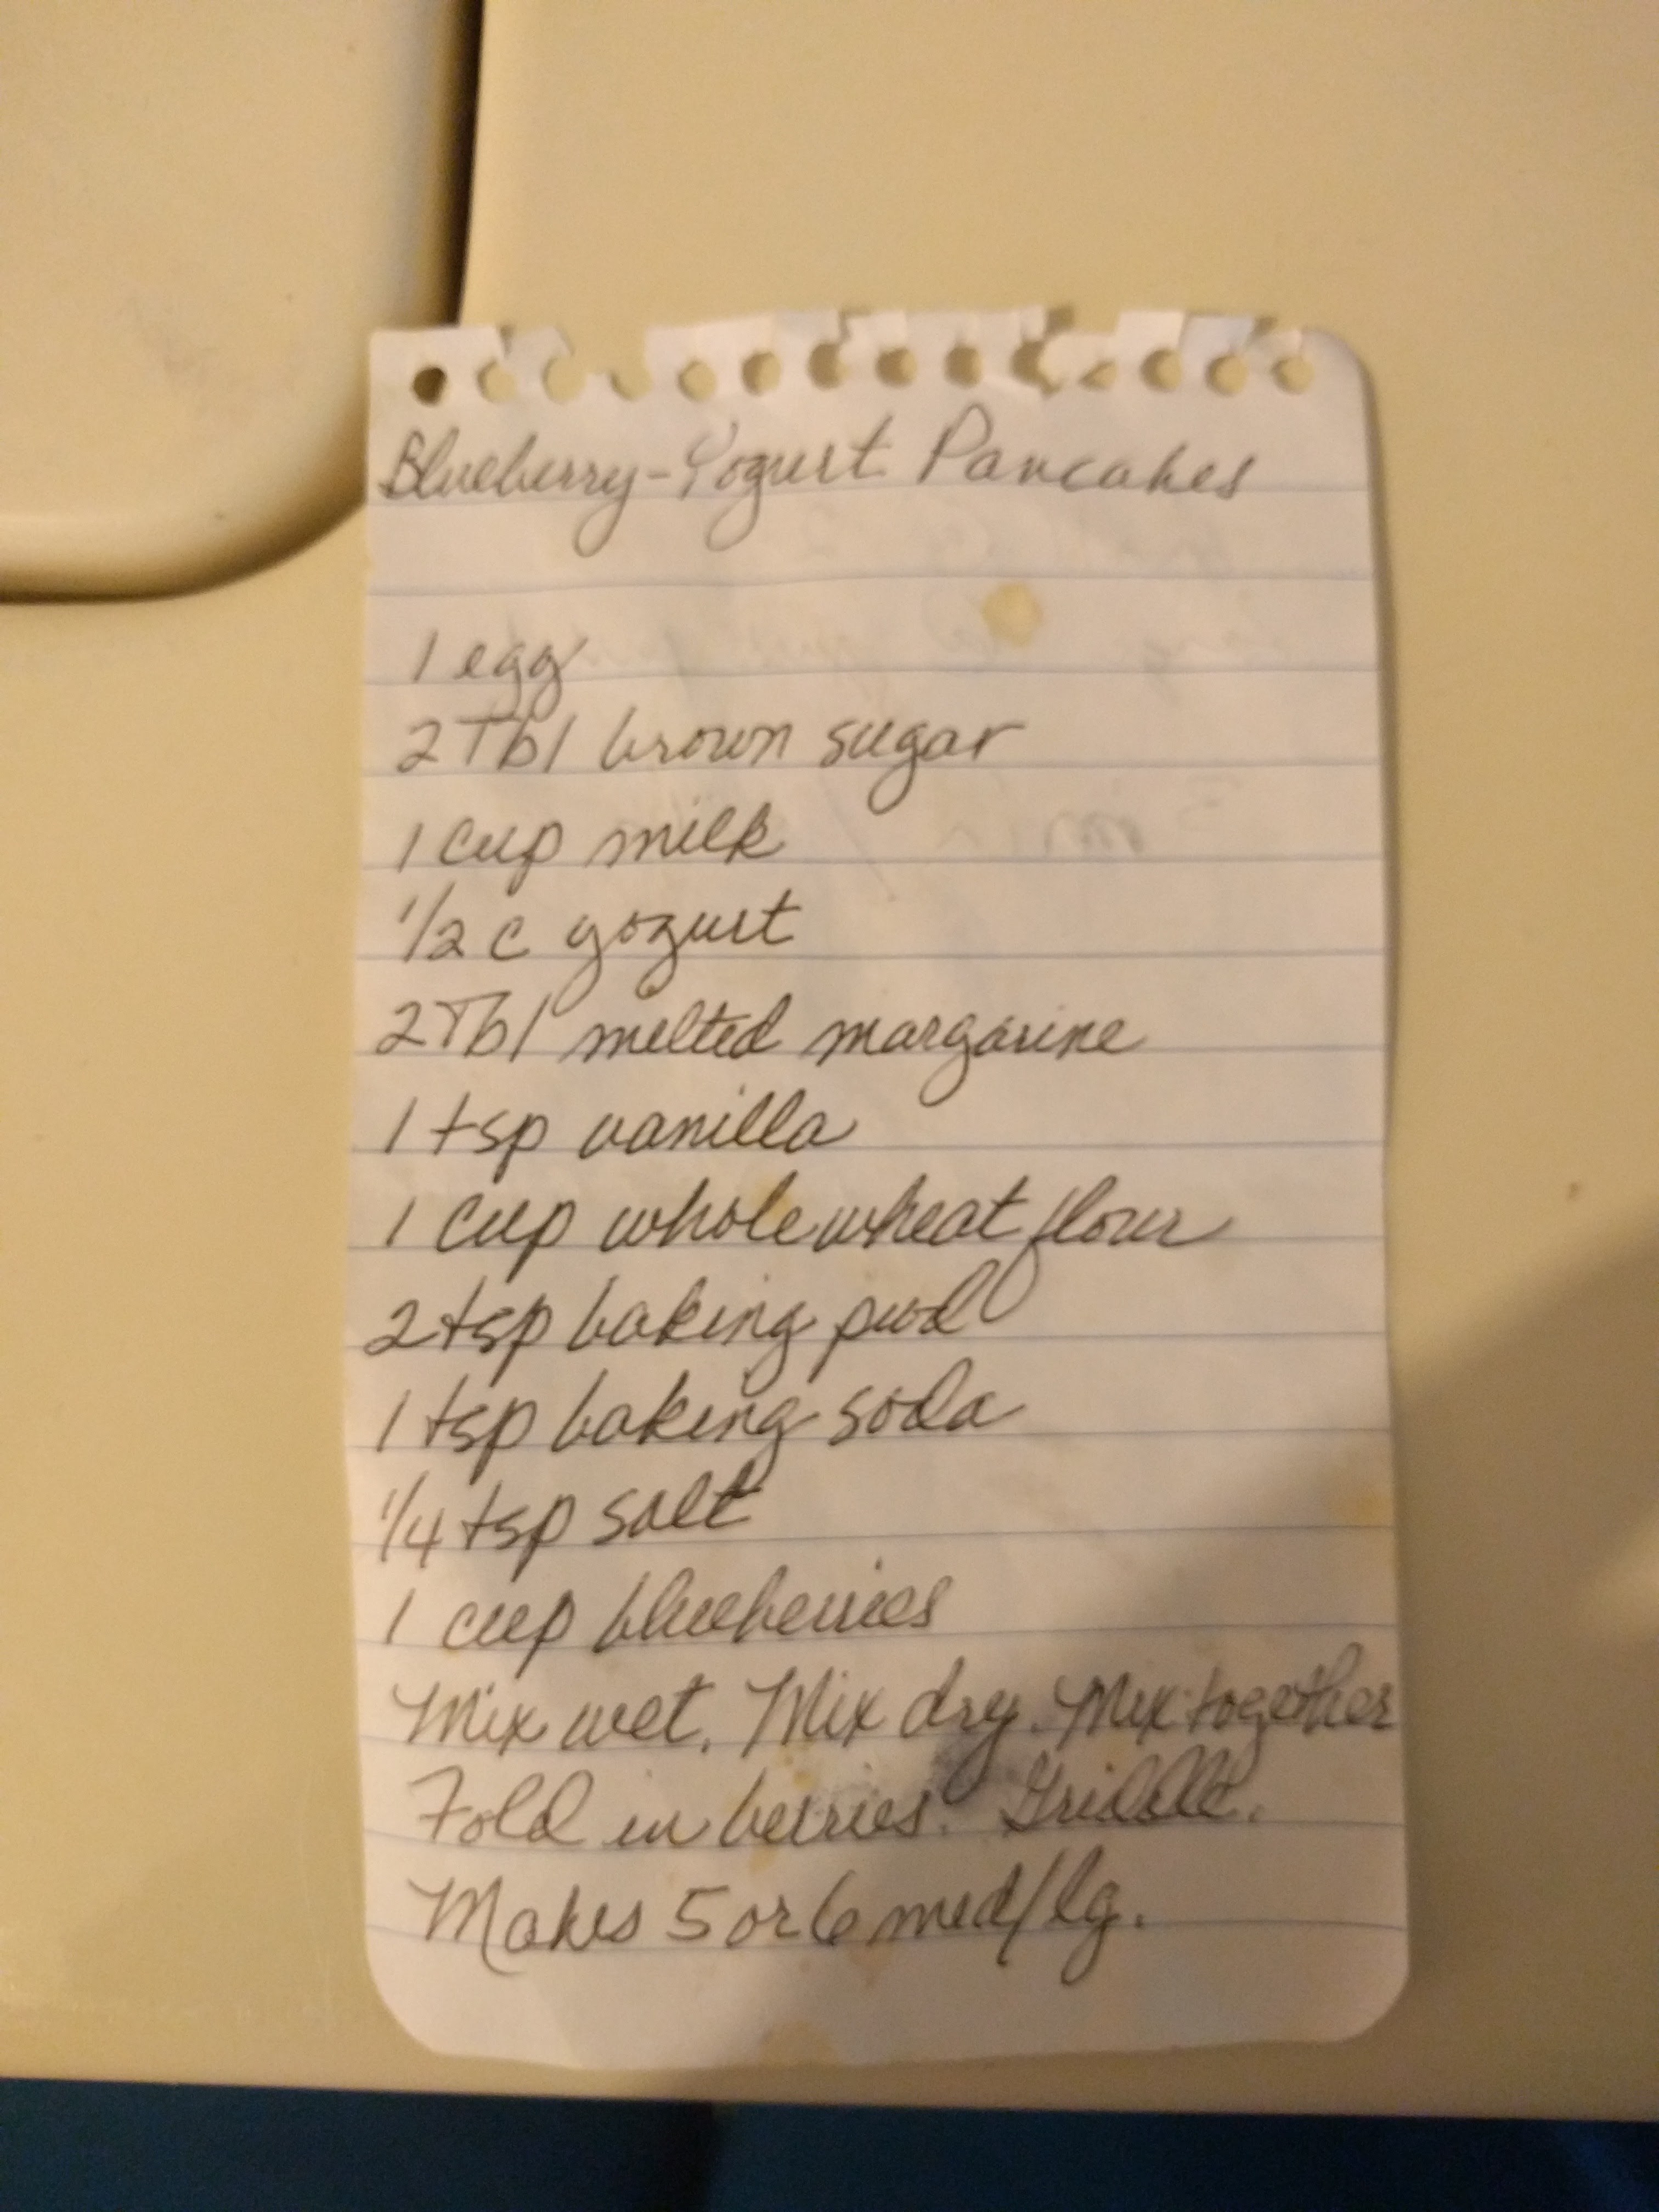 Blueberry-Yogurt Pancakes
1 egg
2 Tbl brown sugar
1 cup milk
1/2 c yogurt
2 Tbl melted margarine
1 tsp vanilla
1 cup whole wheat flour
2 tsp baking powd
1 tsp baking soda
1/4 tsp salt
1 cup blueberries
Mix wet. Mix dry. Mix together
Fold in berries. Griddle.
Makes 5 or 6 med/lg.